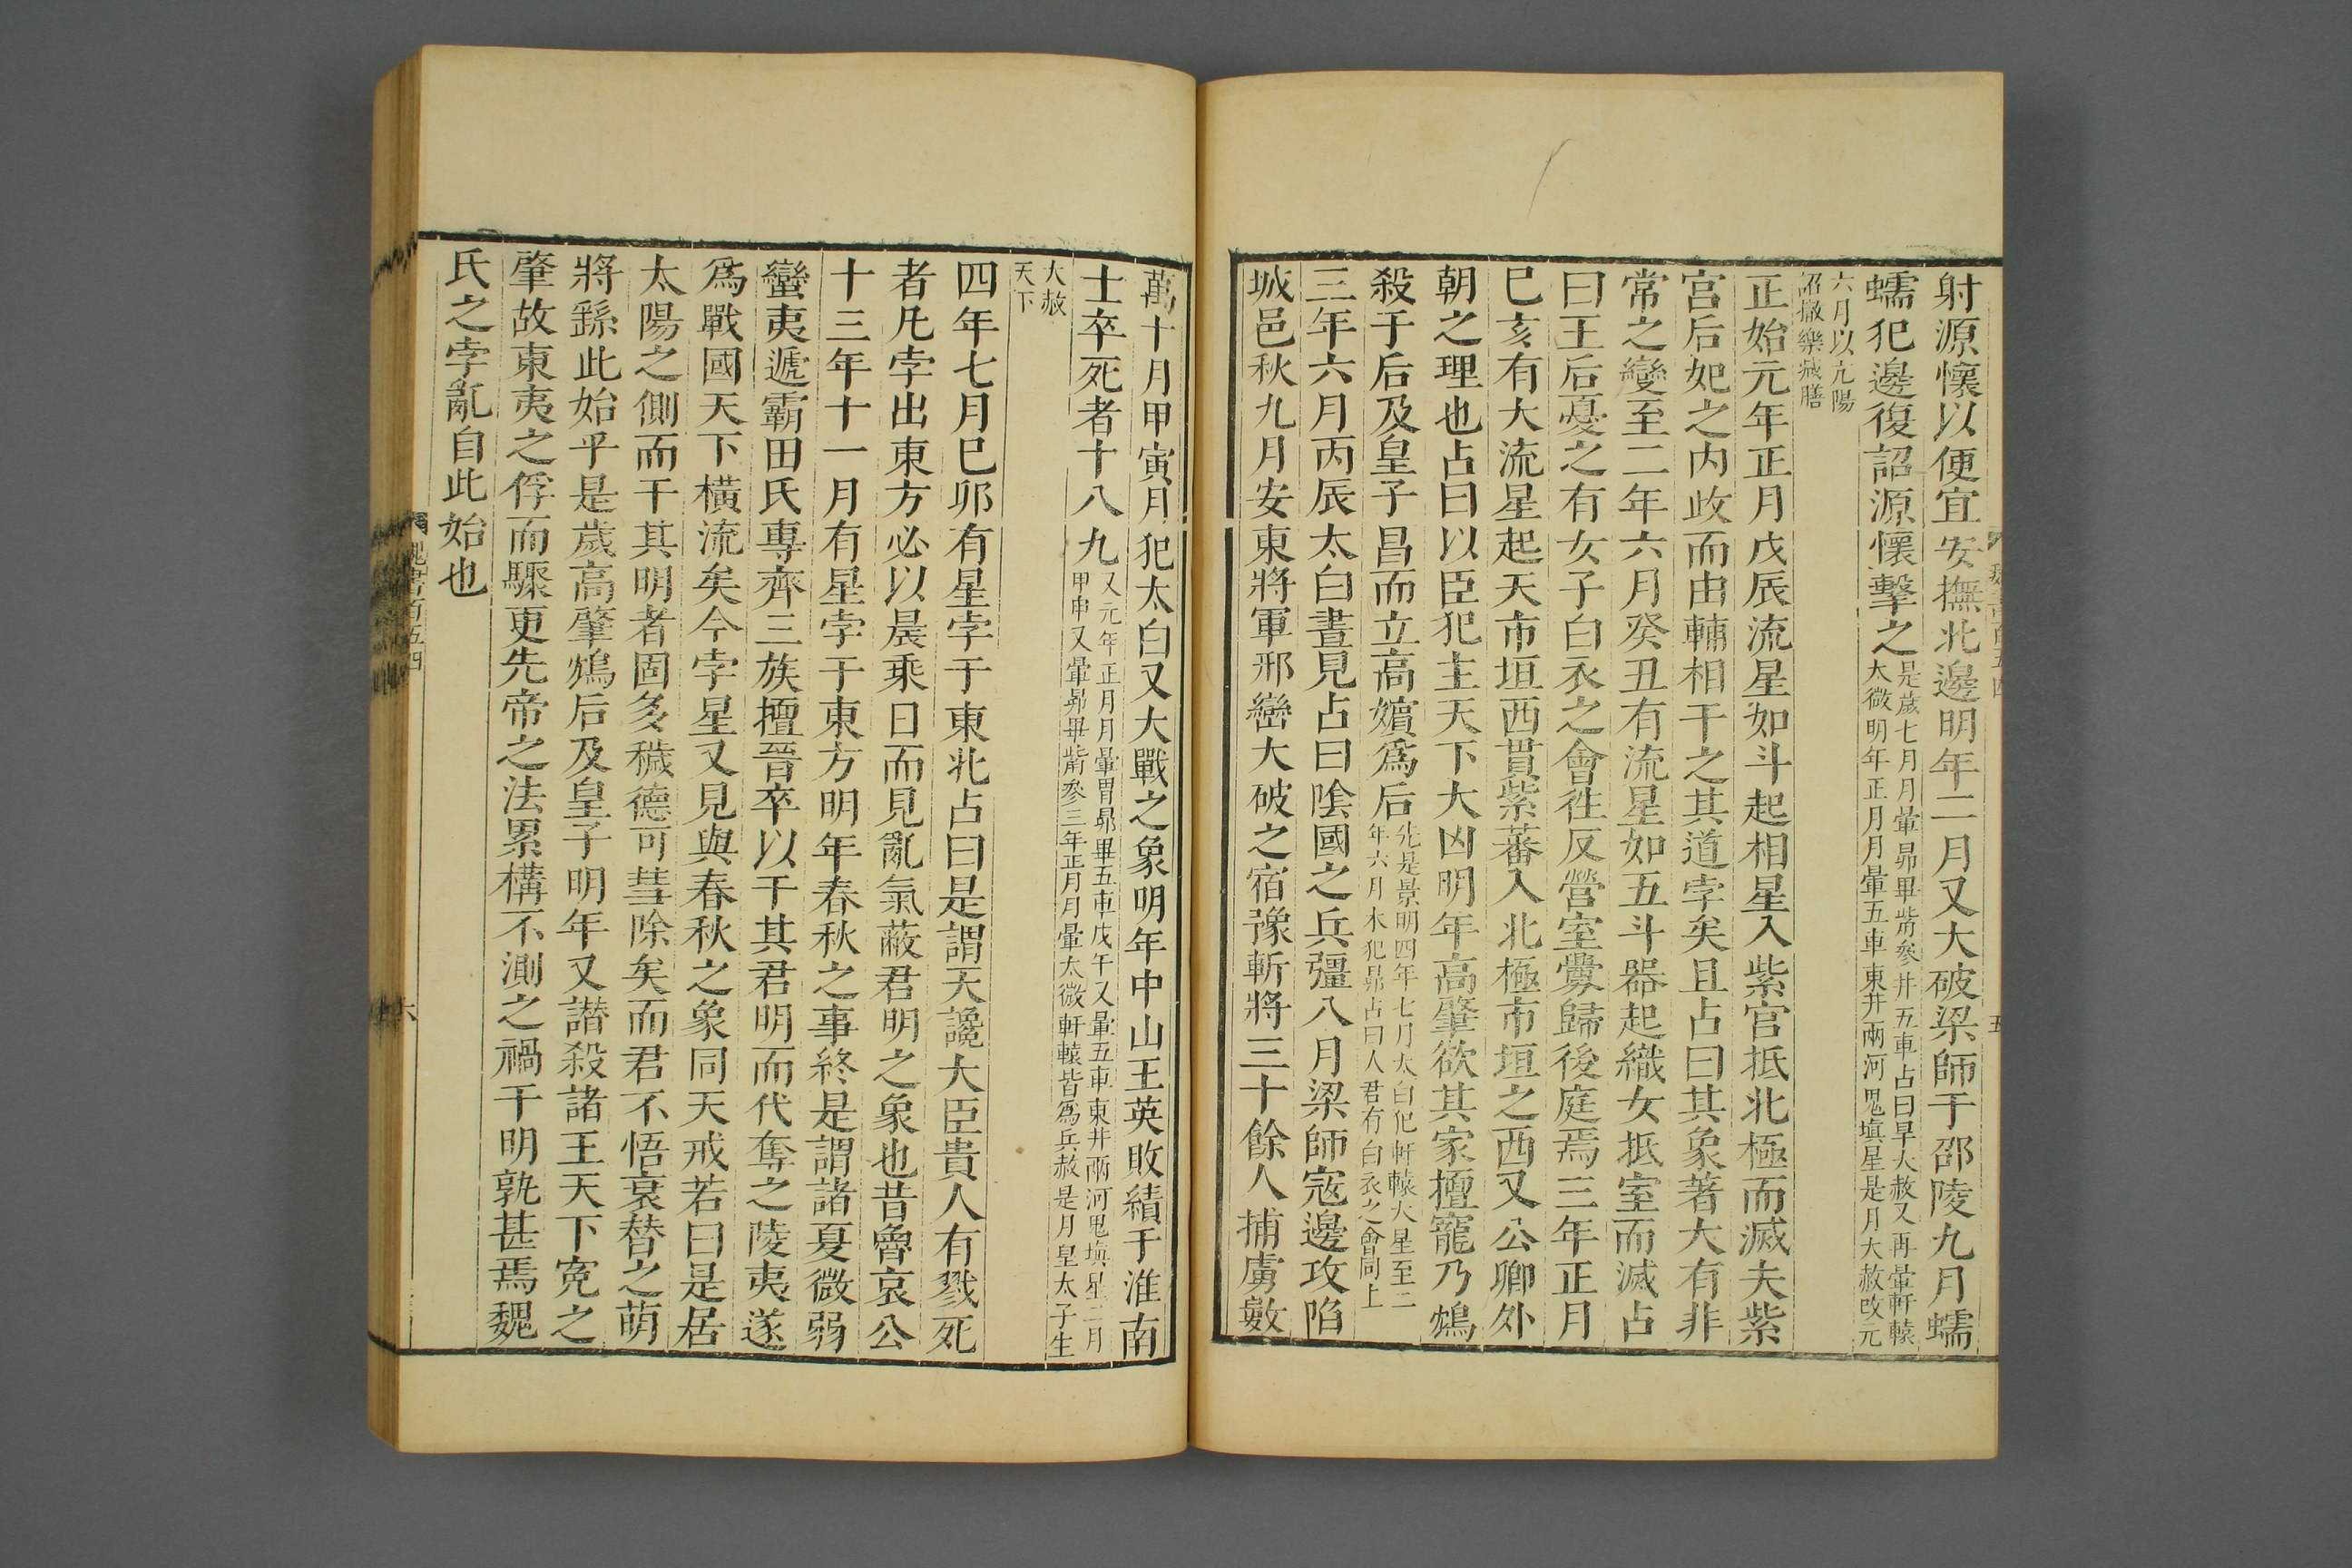 射源懷以便宜安撫北邊明年二月又大破梁師于邵陵九月蠕
蠕犯邊復詔源懷擊之
是歲七月月暈昴畢觜參井五車占曰旱大赦又再暈軒轅
太微明年正月月暈五車東井兩河鬼填星是月大赦改元
六月以亢陽
詔撤樂減膳
正始元年正月戊辰流星如斗起相星入紫宮抵北極而滅夫紫
宮后妃之内政而由輔相干之其道孛矣且占曰其象著大有非
常之變至二年六月癸丑有流星如五斗器起織女抵室而滅占
曰王后憂之有女子白衣之會往反營室釁歸後庭焉三年正月
己亥有大流星起天市垣西貫紫蕃入北極市垣之西又公卿外
朝之理也占曰以臣犯主天下大凶明年高肇欲其家擅寵乃鴆
殺于后及皇子昌而立高嬪爲后
先是景明四年七月太白犯軒轅大星至二
年六月木犯昴占曰人君有白衣之會同上
三年六月丙辰太白晝見占曰陰國之兵彊八月梁師寇邊攻陷
城邑秋九月安東將軍邢巒大破之宿豫斬將三十餘人捕虜數
魏書百五四
五
萬十月甲寅月犯太白又大戰之象明年中山王英敗績于淮南
士卒死者十八九
又元年正月月暈胃昴畢五車戊午又暈五車東井兩河鬼填星二月
甲申又暈昴畢觜參三年正月月暈太微軒轅皆爲兵赦是月皇太子生
大赦
天下
四年七月己卯有星孛于東北占曰是謂天讒大臣貴人有戮死
者凡孛出東方必以晨乘日而見亂氣蔽君明之象也昔魯哀公
十三年十一月有星孛于東方明年春秋之事終是謂諸夏微弱
蠻夷遞霸田氏專齊三族擅晉卒以干其君明而代奪之陵夷遂
爲戰國天下橫流矣今孛星又見與春秋之象同天戒若曰是居
太陽之側而干其明者固多穢德可彗除矣而君不悟衰替之萌
將繇此始乎是歲高肇鴆后及皇子明年又譖殺諸王天下冤之
肇故東夷之俘而驟更先帝之法累構不測之禍干明孰甚焉魏
氏之孛亂自此始也
魏書百五四
六